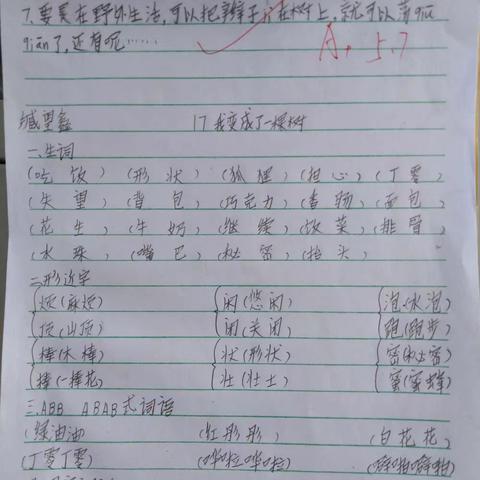 7.要是在野外生活,可以把绳子 在树上,就可以荡qiu
qiān了,还有呢……
A. 5.7
臧望鑫 17 我变成了一棵树
一.生词
(吃饭)(形状)(狐狸)(担心)(丁零)
(失望)(背包)(巧克力)(香肠)(面包)
(花生)(牛奶)(继续)(饭菜)(排骨)
(水珠)(嘴巴)(秘密)(抬头)
二.形近字
烦(麻烦) 闲(悠闲) 泡(水泡)
顶(山顶) 闭(关闭) 跑(跑步)
棒(木棒) 状(形状) 密(秘密)
捧(一捧花) 壮(壮士) 蜜(蜜蜂)
三.ABB ABAB式词语
(绿油油)(红彤彤)(白花花)
(丁零丁零)(哗啦哗啦)(噼啪噼啪)